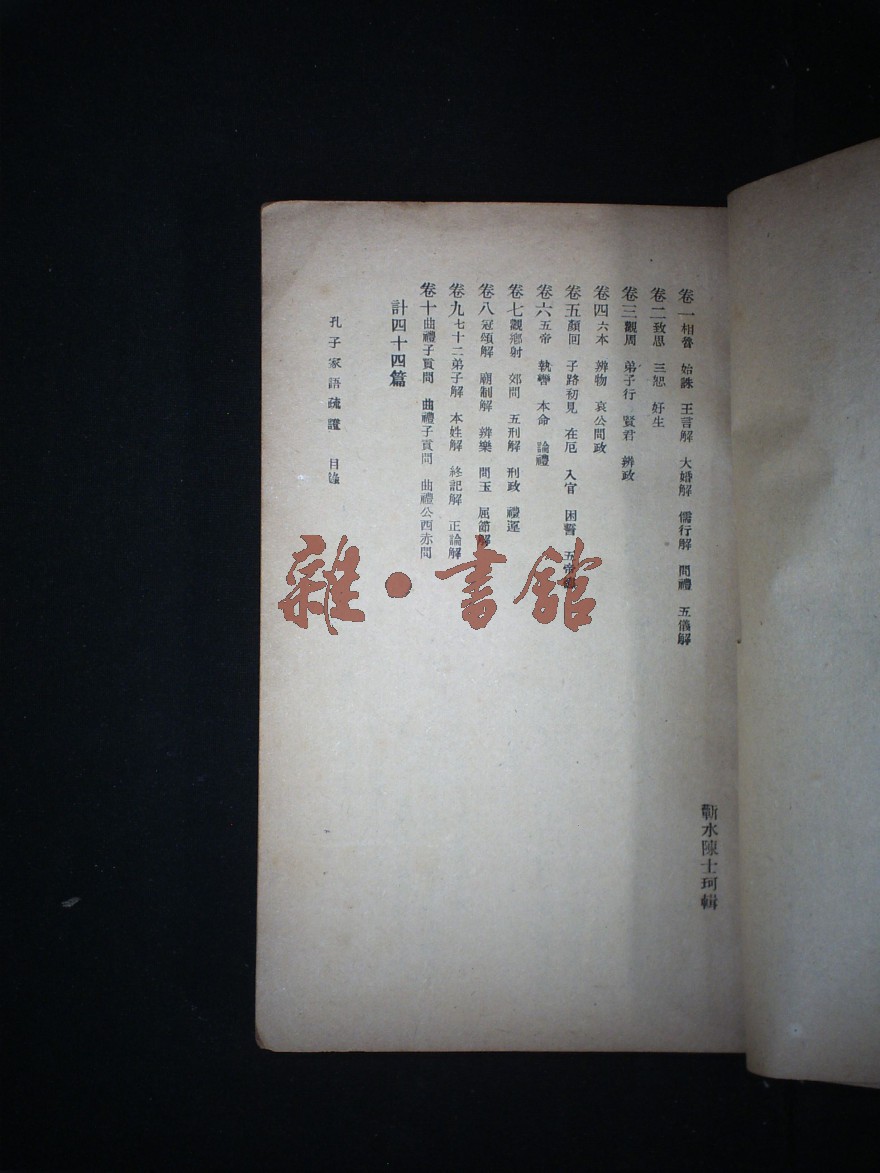 蘄水陳士珂輯
卷一相魯 始誅 王言解 大婚解 儒行解 問禮 五儀解
卷二致思 三恕 好生
卷三觀周 弟子行 賢君 辨政
卷四六本 辨物 哀公問政
卷五顏回 子路初見 在厄 入官 困誓 五帝德
卷六五帝 執轡 本命 論禮
卷七觀鄉射 郊問 五刑解 刑政 禮運
卷八冠頌解 廟制解 辨樂 問玉 屈節解
卷九七十二弟子解 本姓解 終記解 正論解
卷十曲禮子貢問 曲禮子貢問 曲禮公西赤問
計四十四篇
孔子家語疏證 目錄
雜·書館